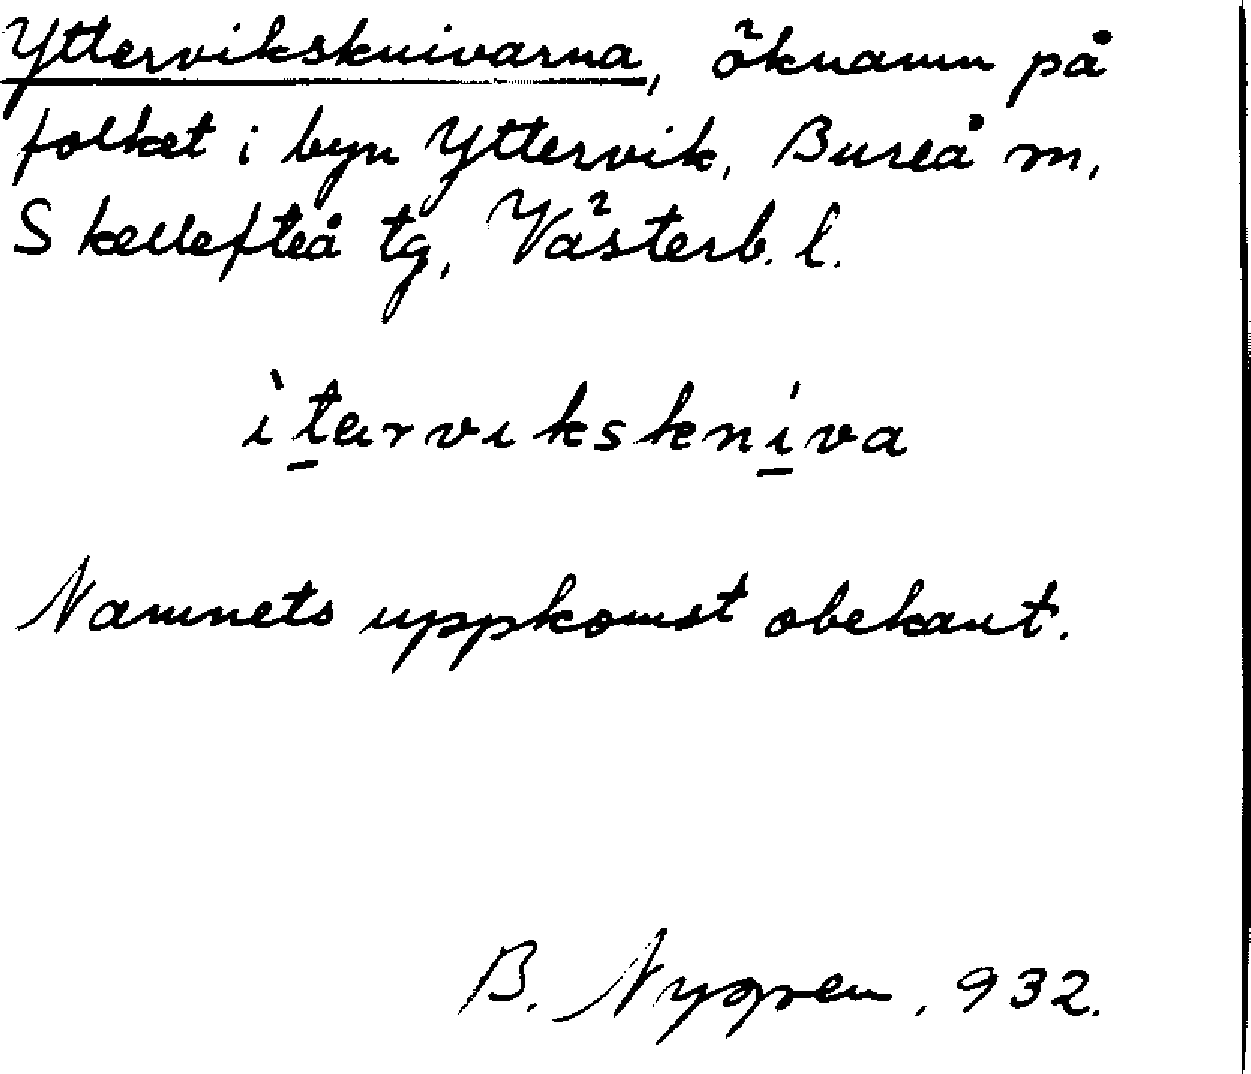 Ytterviksknivarna, öknamn på
folket i byn Yttervik, Bureå m,
Skellefteå tg, Västerb. l.
ìtarvikskníva
Namnets uppkomst obekant.
B. Nygren, 932.